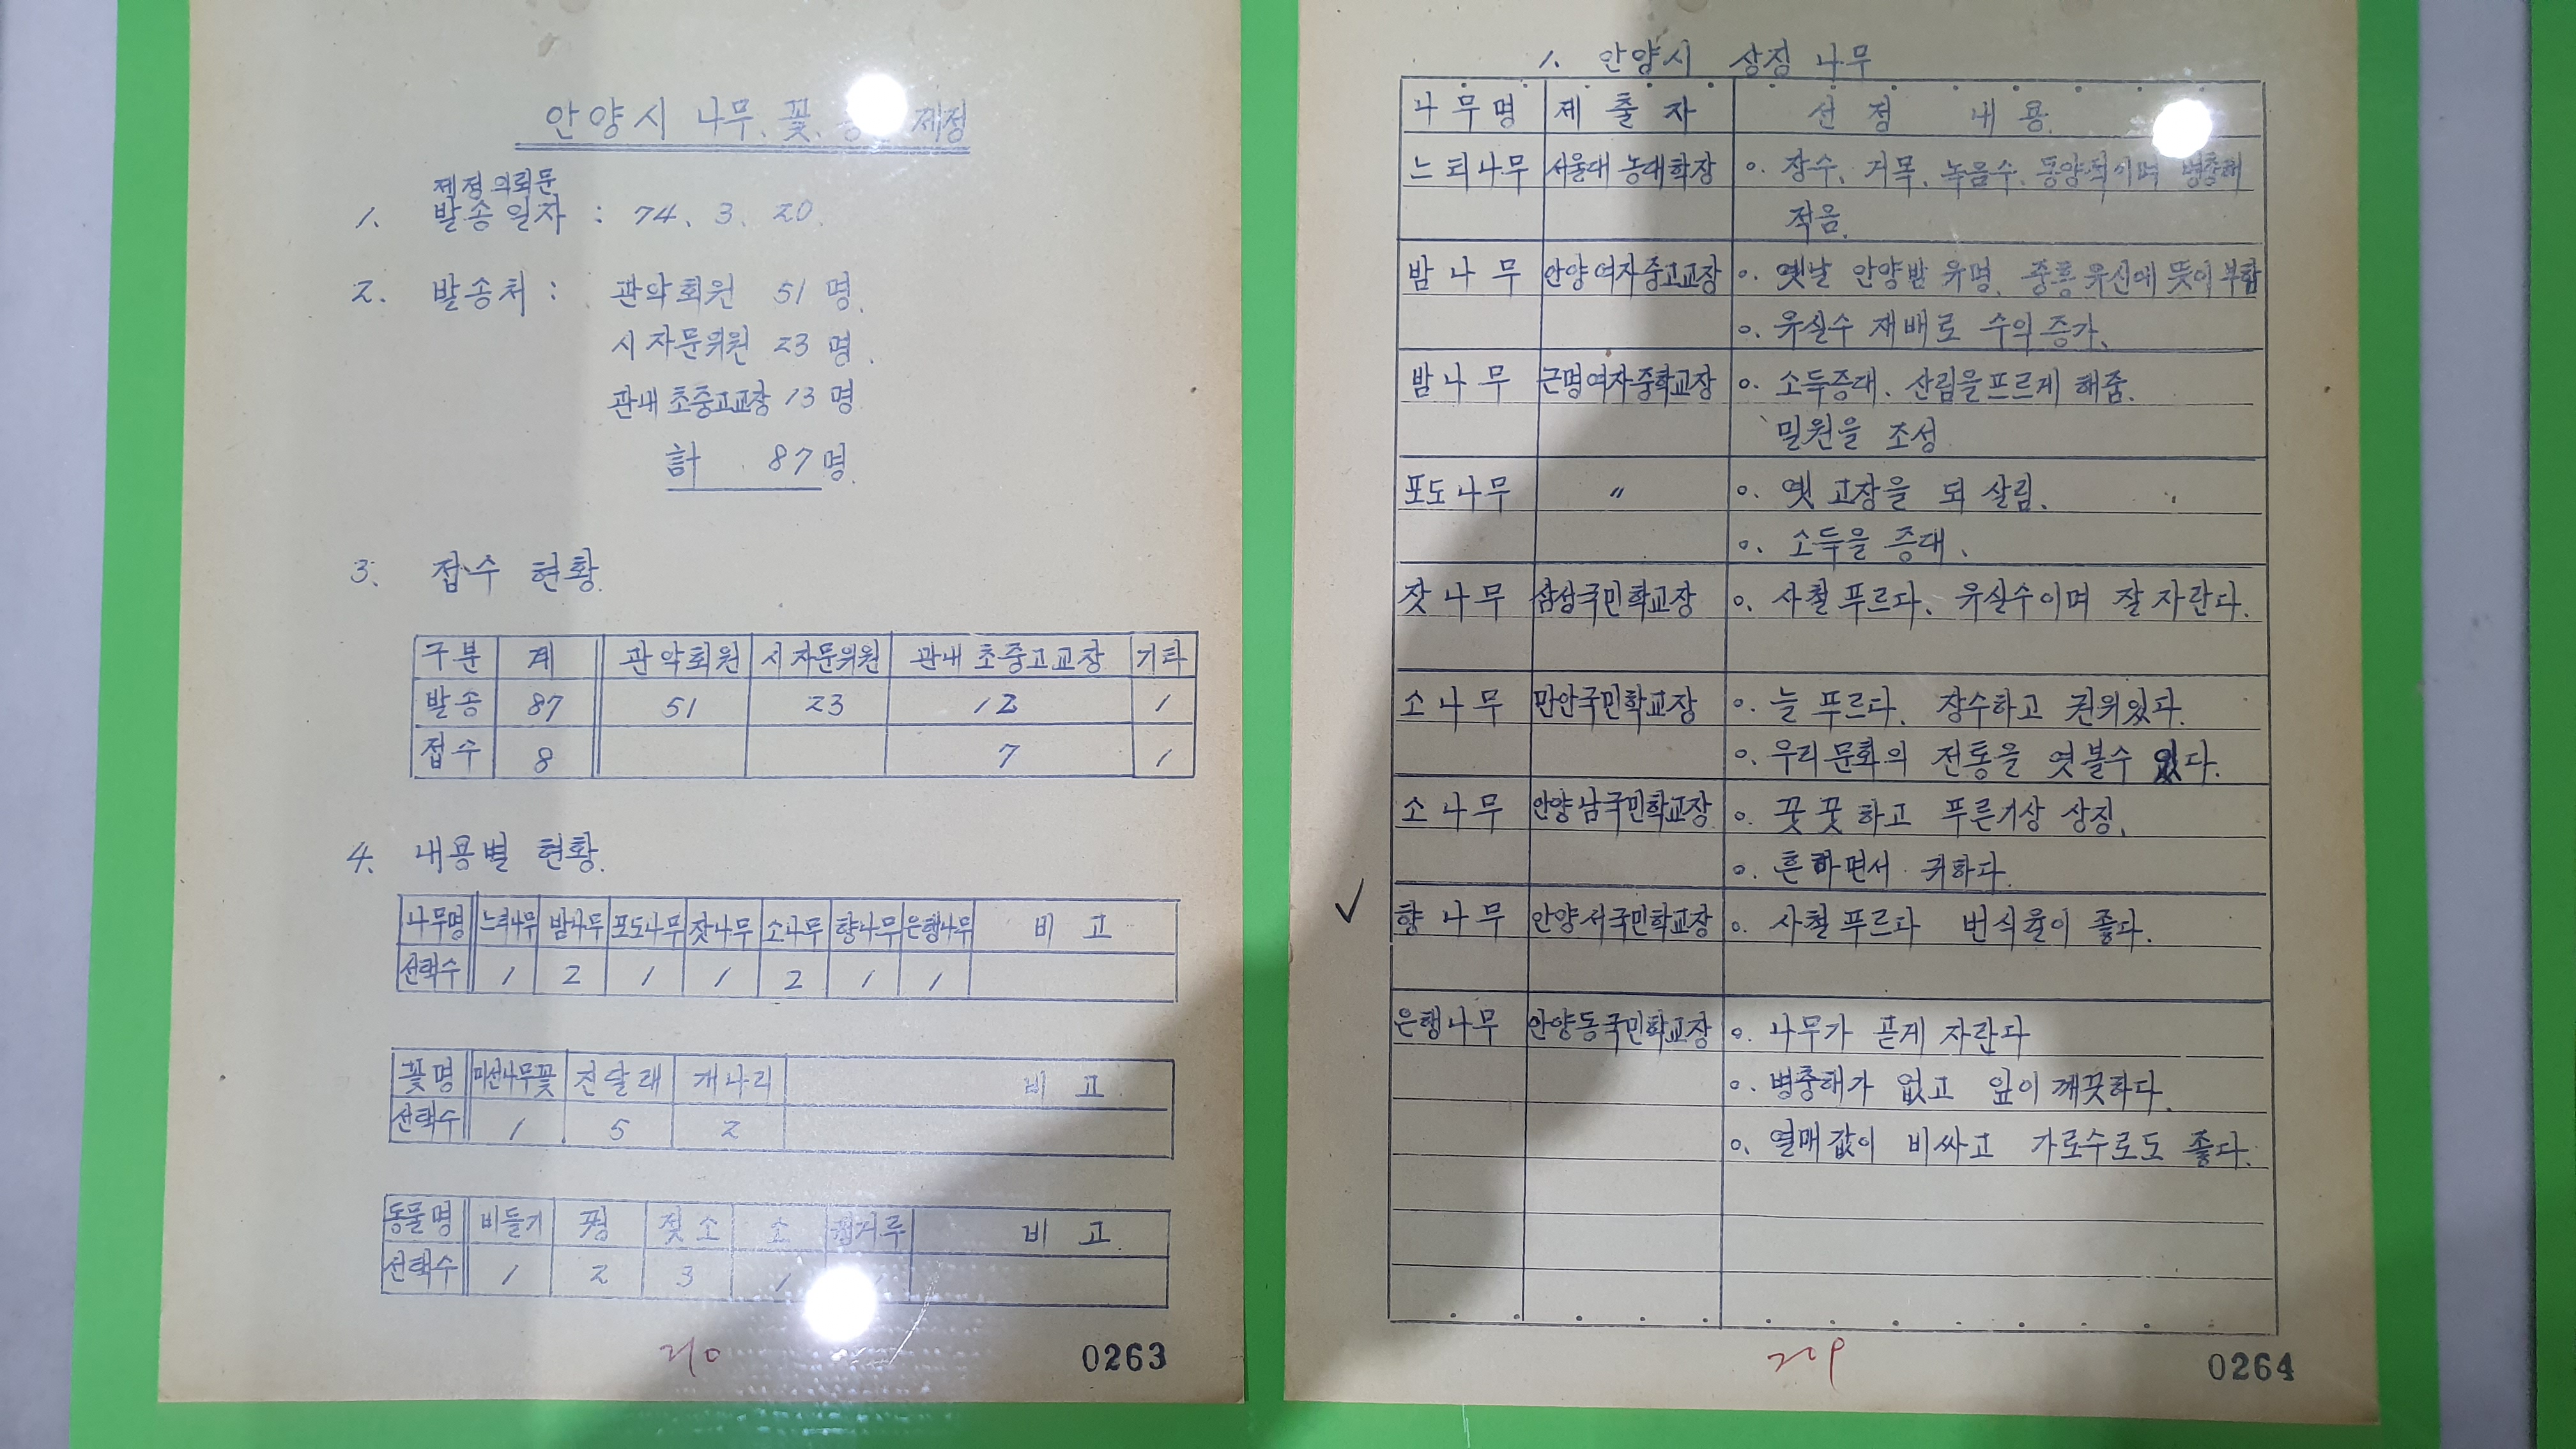 안양시 나무、꽃、 제정
제정의뢰문
1、 발송일자 : 74、3、20.
2. 발송처 : 관악회원 51명.
시자문위원 23명.
관내초중고교장 13명
計 87명.
3、 접수 현황.
구분 계 관악회원 시자문위원 관내초중고교장 기타
발송 87 51 23 12 1
접수 8 7 1
4、 내용별 현황.
나무명 느티나무 밤나무 포도나무 잣나무 소나무 향나무 은행나무 비고
선택수 1 2 1 1 2 1 1
꽃명 미선나무꽃 진달래 개나리 비고
선택수 1 5 2
동물명 비들기 꿩 젖소 소 비고.
선택수 1 2 3 1
210
0263
1. 안양시 상징나무
나무명 제출자 선정 내용.
느티나무 서울대 농대학장 o. 장수、거목、녹음수、동양적이며 병충해
적음.
밤나무 안양여자중고교장 o. 옛날 안양밤 유명、중흥유신에 뜻이 부합
o. 유실수 재배로 수익증가、
밤나무 근명여자중학교장 o. 소득증대、산림을 프르게 해줌.
밀원을 조성
포도나무 〃 o. 옛 고장을 되 살림、
o. 소득을 증대、
잣나무 삼성국민학교장 o. 사철 푸르다、유실수이며 잘 자란다.
소나무 만안국민학교장 o. 늘 푸르다、장수하고 권위있다.
o. 우리문화의 전통을 엿볼수 있다.
소나무 안양남국민학교장 o. 꿋꿋하고 푸른기상 상징、
o. 흔하면서 귀하다.
✓ 향나무 안양서국민학교장 o. 사철푸르다 번식율이 좋다.
은행나무 안양동국민학교장 o. 나무가 곧게 자란다
o. 병충해가 없고 잎이 깨끗하다.
o. 열매값이 비싸고 가로수로도 좋다.
209
0264